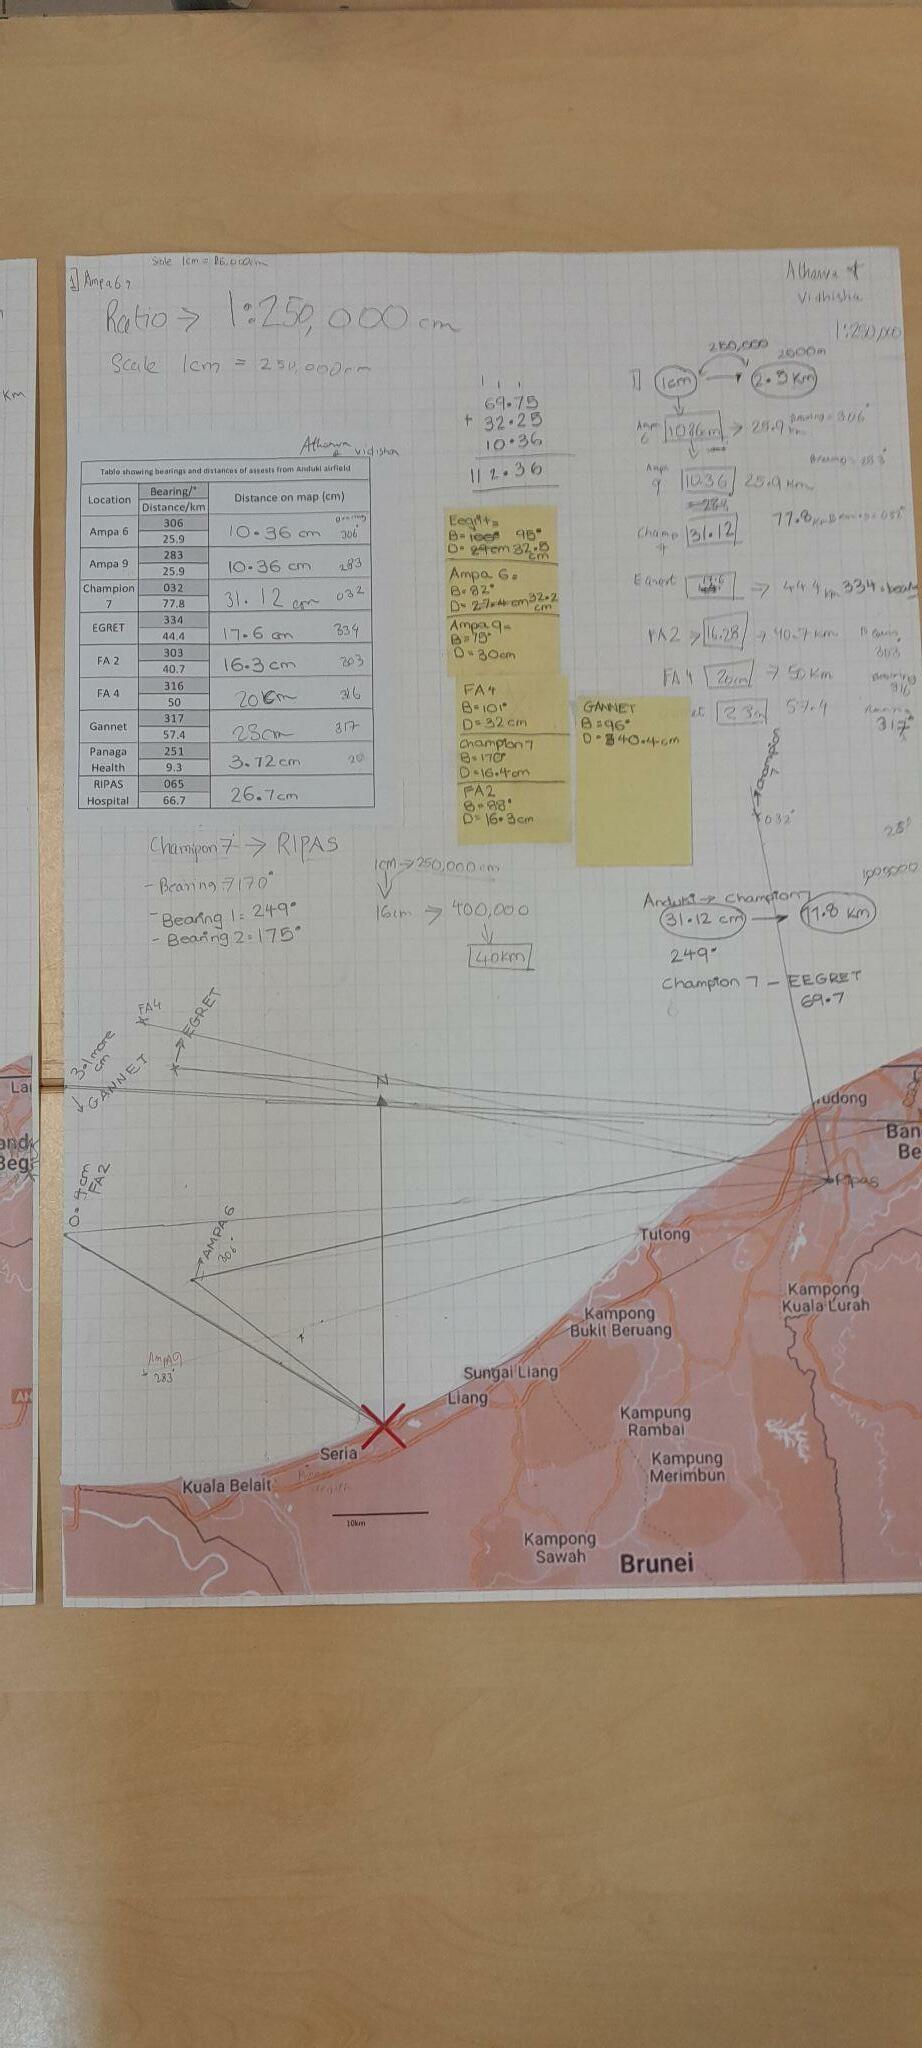 Km
La
Beg
1] Ampa 6?
Ratio → 1:250,000 cm
Scale 1cm = 250,000cm
Atharva &
Vidhisha
1:250,000
Atharva
& vidisha
Table showing bearings and distances of assests from Anduki airfield
Location Bearing/° Distance/km Distance on map (cm)
Ampa 6 306 25.9 10.36 cm 306°
Ampa 9 283 25.9 10.36 cm 283
Champion 7 032 77.8 31.12 cm 032
EGRET 334 44.4 17.6 cm 334
FA 2 303 40.7 16.3cm 303
FA 4 316 50 20cm 316
Gannet 317 57.4 23cm 317
Panaga Health 251 9.3 3.72cm
RIPAS Hospital 065 66.7 26.7cm
69.75
+ 32.25
10.36
112.36
B= 95°
32.5
cm
Ampa 6=
B=82°
D= 32.2
cm
Ampa 9=
B=75°
D=30cm
FA4
B=101°
D=32cm
Champion 7
B=170°
D=16.4cm
FA2
B=88°
D=16.3cm
GANNET
B=96°
D= 40.4cm
1] 1cm → 2.5 Km
250,000
2500m
Ampa
6
→ 25.9 km Bearing = 306°
Ampa
9 10.36 25.9 Km
Champ
31.12 77.8 Km
→ 44.4 km 334
FA2 > 16.28 → 40.7 km
303
FA4 20cm → 50 Km
316
57.4
317°
Champion 7
032°
Champion 7 → RIPAS
- Bearing → 170°
- Bearing 1= 249°
- Bearing 2= 175°
1cm → 250,000cm
16cm → 400,000
40km
Anduki → Champion 7
31.12 cm → 77.8 Km
249°
Champion 7 - EEGRET
69.7
FA4
→ EGRET
3.1 more
cm
GANNET
N
FA2
AMPA 6
306°
Ampa 9
283°
Tudong
Ban
Be
Ripas
Tutong
Kampong
Kuala Lurah
Kampong
Bukit Beruang
Sungai Liang
Liang
Kampung
Rambai
Seria
Kampung
Merimbun
Kuala Belait
10km
Kampong
Sawah
Brunei